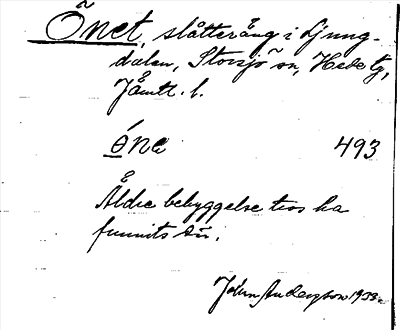 Önet, slåtteräng i Ljung-
dalen, Storsjö sn, Hede tg,
Jämtl. l.
óne 493
Äldre bebyggelse tros ha
funnits där.
John Anderzson 1933